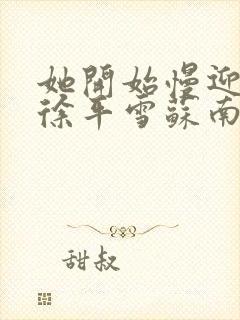 她開始慢迎
徐平雪蘇南
甜叔